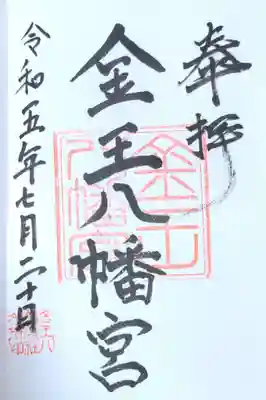 奉拝
金王八幡宮
令和五年七月二十日
金王八幡宮